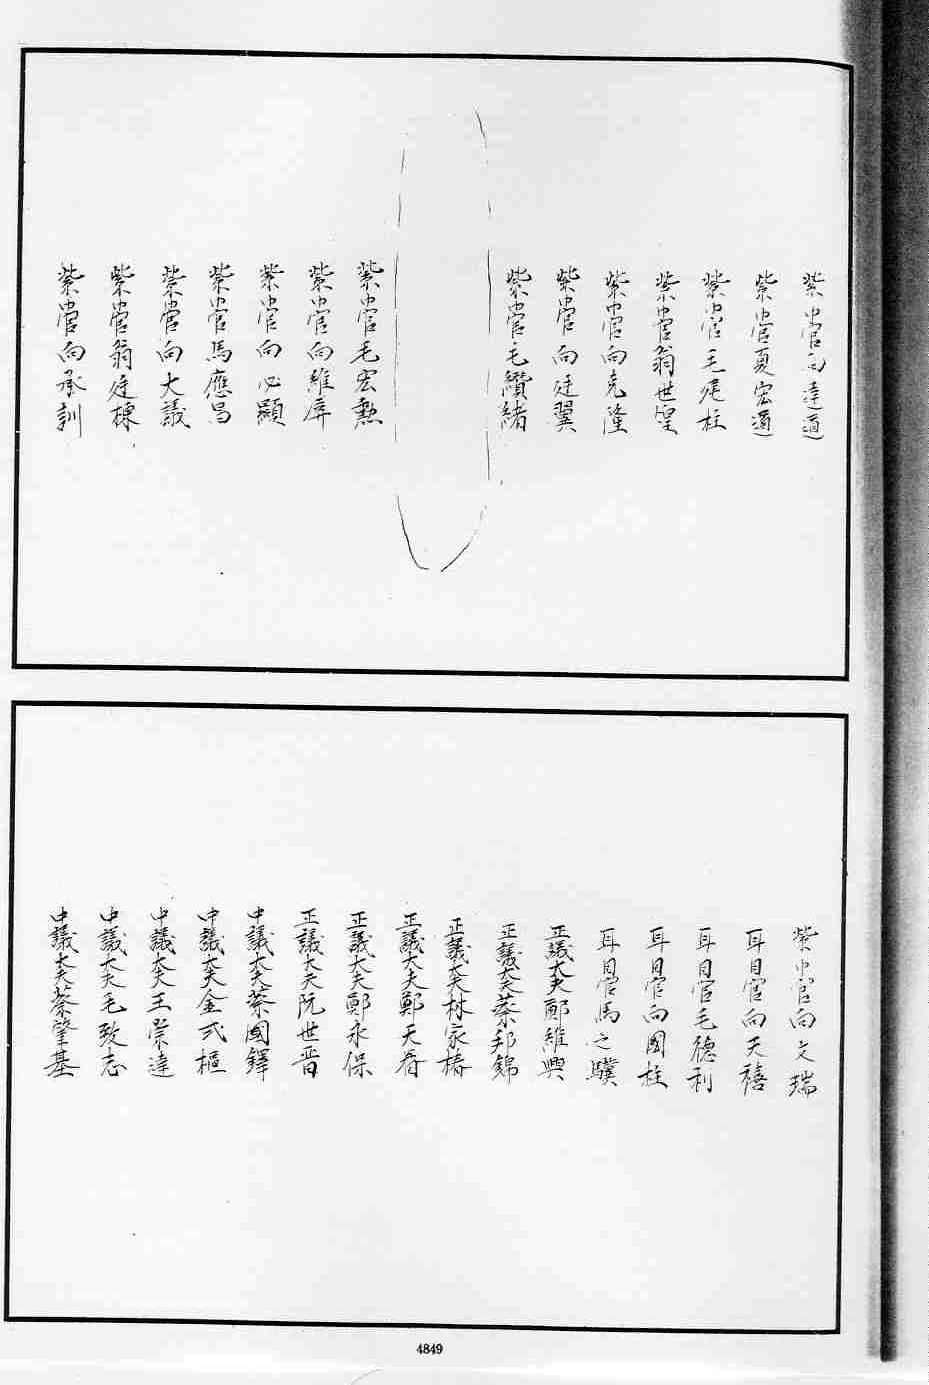 紫巾官向達道
紫巾官夏宏道
紫巾官毛廷柱
紫巾官翁世煌
紫巾官向克隆
紫巾官向廷翼
紫巾官毛纘緒
紫巾官毛宏勲
紫巾官向維屏
紫巾官向必顯
紫巾官馬應昌
紫巾官向大議
紫巾官翁廷棟
紫巾官向承訓
紫巾官向文瑞
耳目官向天禧
耳目官毛德利
耳目官向國柱
耳目官馬之驥
正議大夫鄭維興
正議大夫蔡邦錦
正議大夫林家椿
正議大夫鄭天春
正議大夫鄭永保
正議大夫阮世晋
中議大夫蔡國鐸
中議大夫金式樞
中議大夫王崇達
中議大夫毛致志
中議大夫蔡肇基
4849